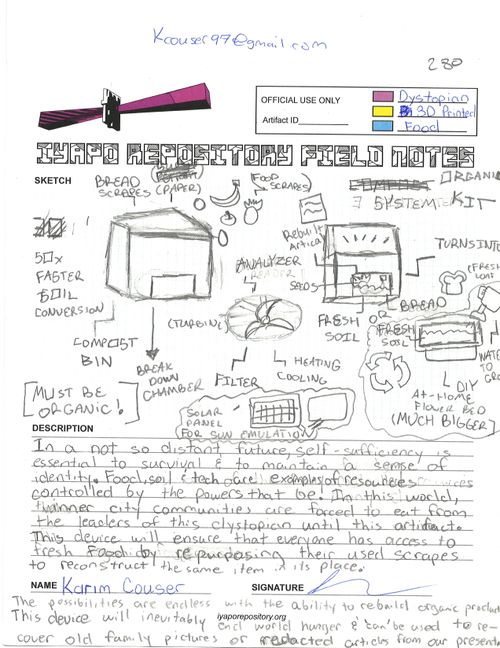 Kcouser97@gmail.com
280
OFFICIAL USE ONLY
Artifact ID
Dystopian
3D Printed
Food
IYAPO REPOSITORY FIELD NOTES
SKETCH
BREAD
SCRAPES (PAPER)
(FOOD
SCRAPES)
ORGANIC
3 SYSTEM KIT
50x
FASTER
SOIL
CONVERSION
ANALYZER
Rebuilt
Artical
SEEDS
TURNS INTO
(FRESH
LOAF
(TURBINE)
FRESH OR BREAD
SOIL
FRESH
SOIL
COMPOST
BIN
BREAK
DOWN
CHAMBER
FILTER
HEATING
COOLING
WATE
TO GR
[MUST BE
ORGANIC!]
SOLAR
PANEL
FOR SUN EMULATION
DIY
At-Home
Flower Bed
(MUCH BIGGER)
DESCRIPTION
In a not so distant future, self-sufficiency is
essential to survival & to maintain a sense of
identity. Food, soil & tech are examples of resources
controlled by the powers that be. In this world,
inner city communities are forced to eat from
the leaders of this dystopian until this artifact.
This device will ensure that everyone has access to
fresh food by repurposing their used scrapes
to reconstruct the same item in its place.
NAME Karim Couser SIGNATURE
The possibilities are endless with the ability to rebuild organic product
iyaporepository.org
This device will inevitably end world hunger & can be used to re-
cover old family pictures or redacted articles from our present